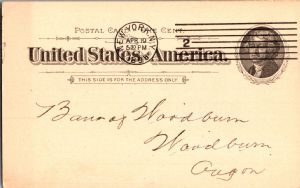 POSTAL CARD ONE CENT.
United States America.
THIS SIDE IS FOR THE ADDRESS ONLY.
NEW YORK, N.Y.
APR 19
530 PM
2
Bank of Woodburn
Woodburn
Oregon